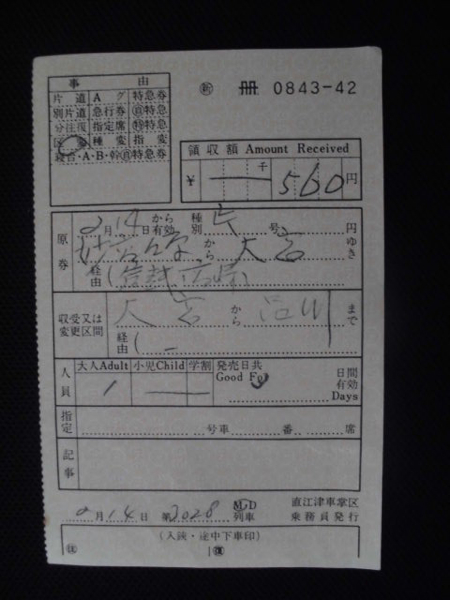 ㊟ 冊 0843-42
事由
片道 A グ 特急券
別片道 急行券 特急
分往復 指定席 特急
区変 種変 指変
寝台・A・B・幹 特急券
領収額 Amount Received
¥ 千 560円
原券
2月14日から有効 種別 片 号 円
妙高高原から大宮ゆき
経由(信越高崎
収受又は変更区間
大宮から品川まで
経由(
人員
大人Adult 小児Child 学割 発売日共 日間有効
1 Good For Days
指定 号車 番 席
記事
2月14日 第3028 M D 列車 直江津車掌区乗務員発行
(入鋏・途中下車印)